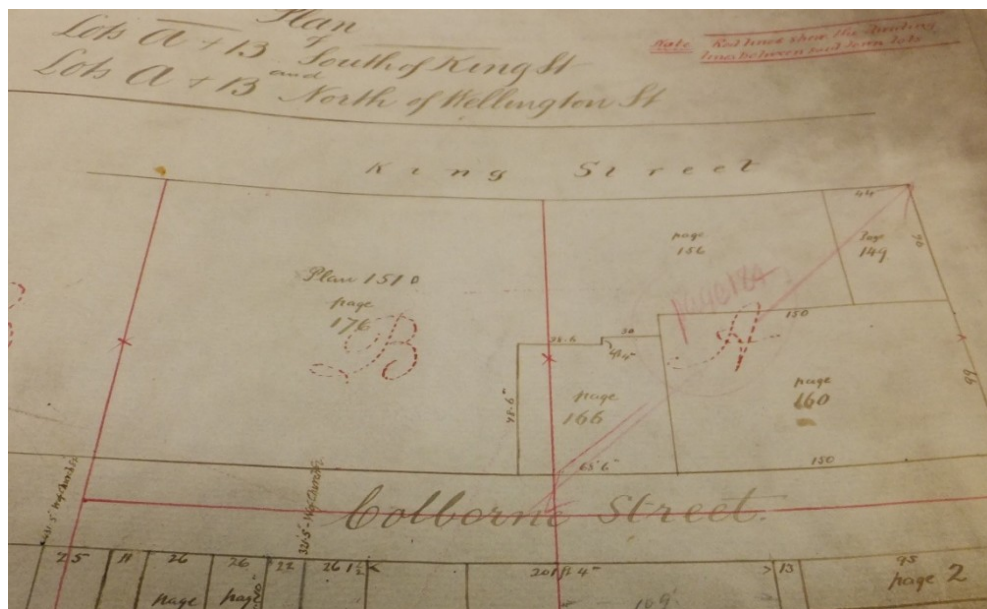 Plan
of
Lots A + B South of King St
and
Lots A + B North of Wellington St
Note Red lines show the dividing
lines between said town lots
King Street
44
page
149
90
page
156
Plan 151 D
page
176
B
A
150
30
36.6
48.6"
page
166
page
160
99
65'6"
150
Colborne Street.
25
11
26
26
22
26 1/2
201 ft 4"
13
95
page
page
109
page 2